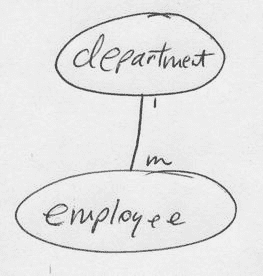 department
1
m
employee